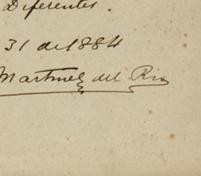 Diferentes.
31 de 1884
Martinez del Rio